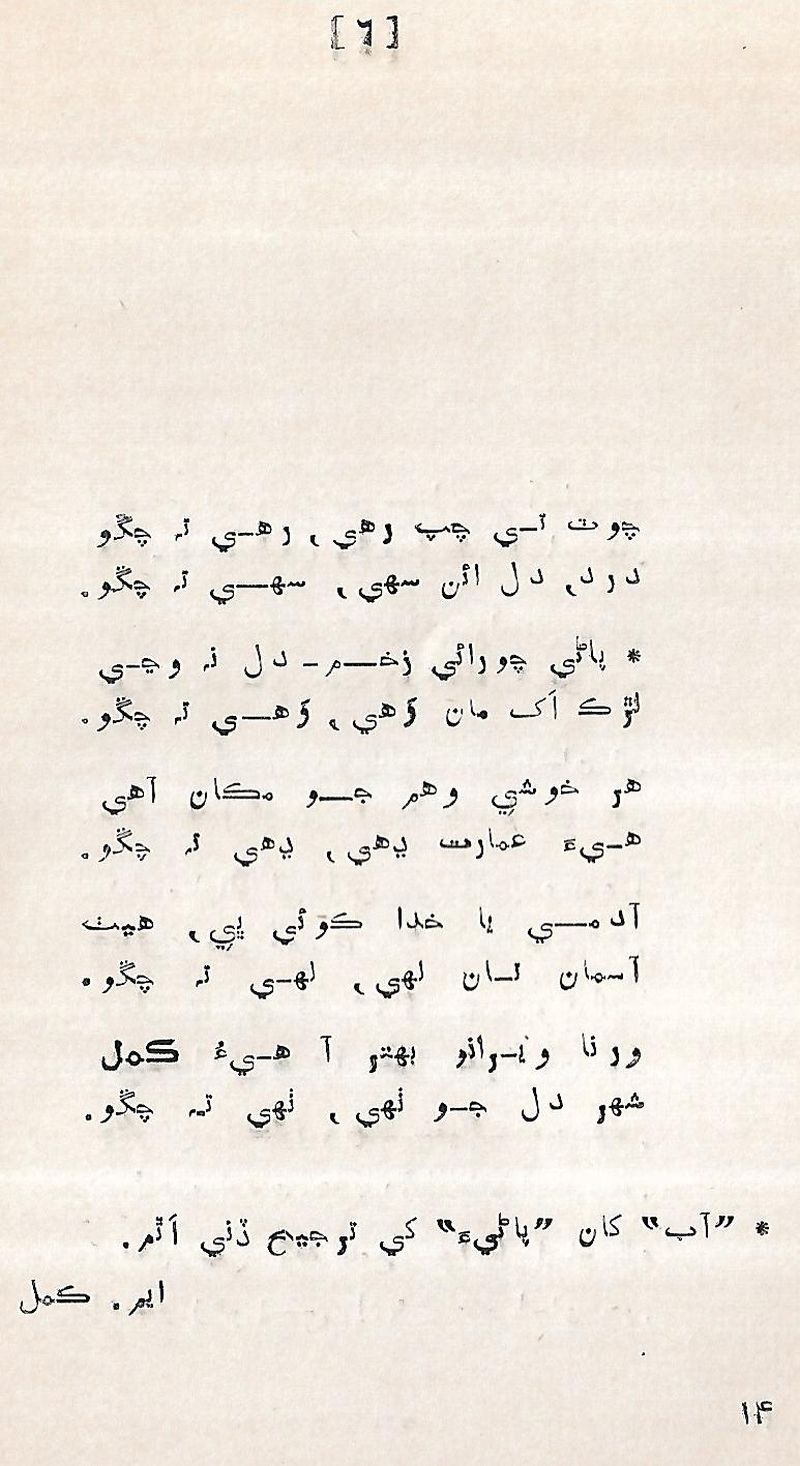 [٦]
چوٽ تي چپ رهي، رهي ته چڱو
درد، دل ائن سهي، سهي ته چڱو.
* پاڻي چورائي زخم - دل نه وڃي
لڙڪ اَک مان وَهي، وَهي ته چڱو.
هر خوشي وهم جو مڪان آهي
هيءَ عمارت ڊهي، ڊهي ته چڱو.
آدمي يا خدا ڪوئي ٿي، هيٺ
آسمان تان لهي، لهي ته چڱو.
ورنا ويرانو بهتر آ هيءُ ڪمل
شهر دل جو ٺهي، ٺهي ته چڱو.
* ”آب“ کان ”پاڻيءَ“ کي ترجيح ڏني اَٿم.
ايم. ڪمل
۱۴